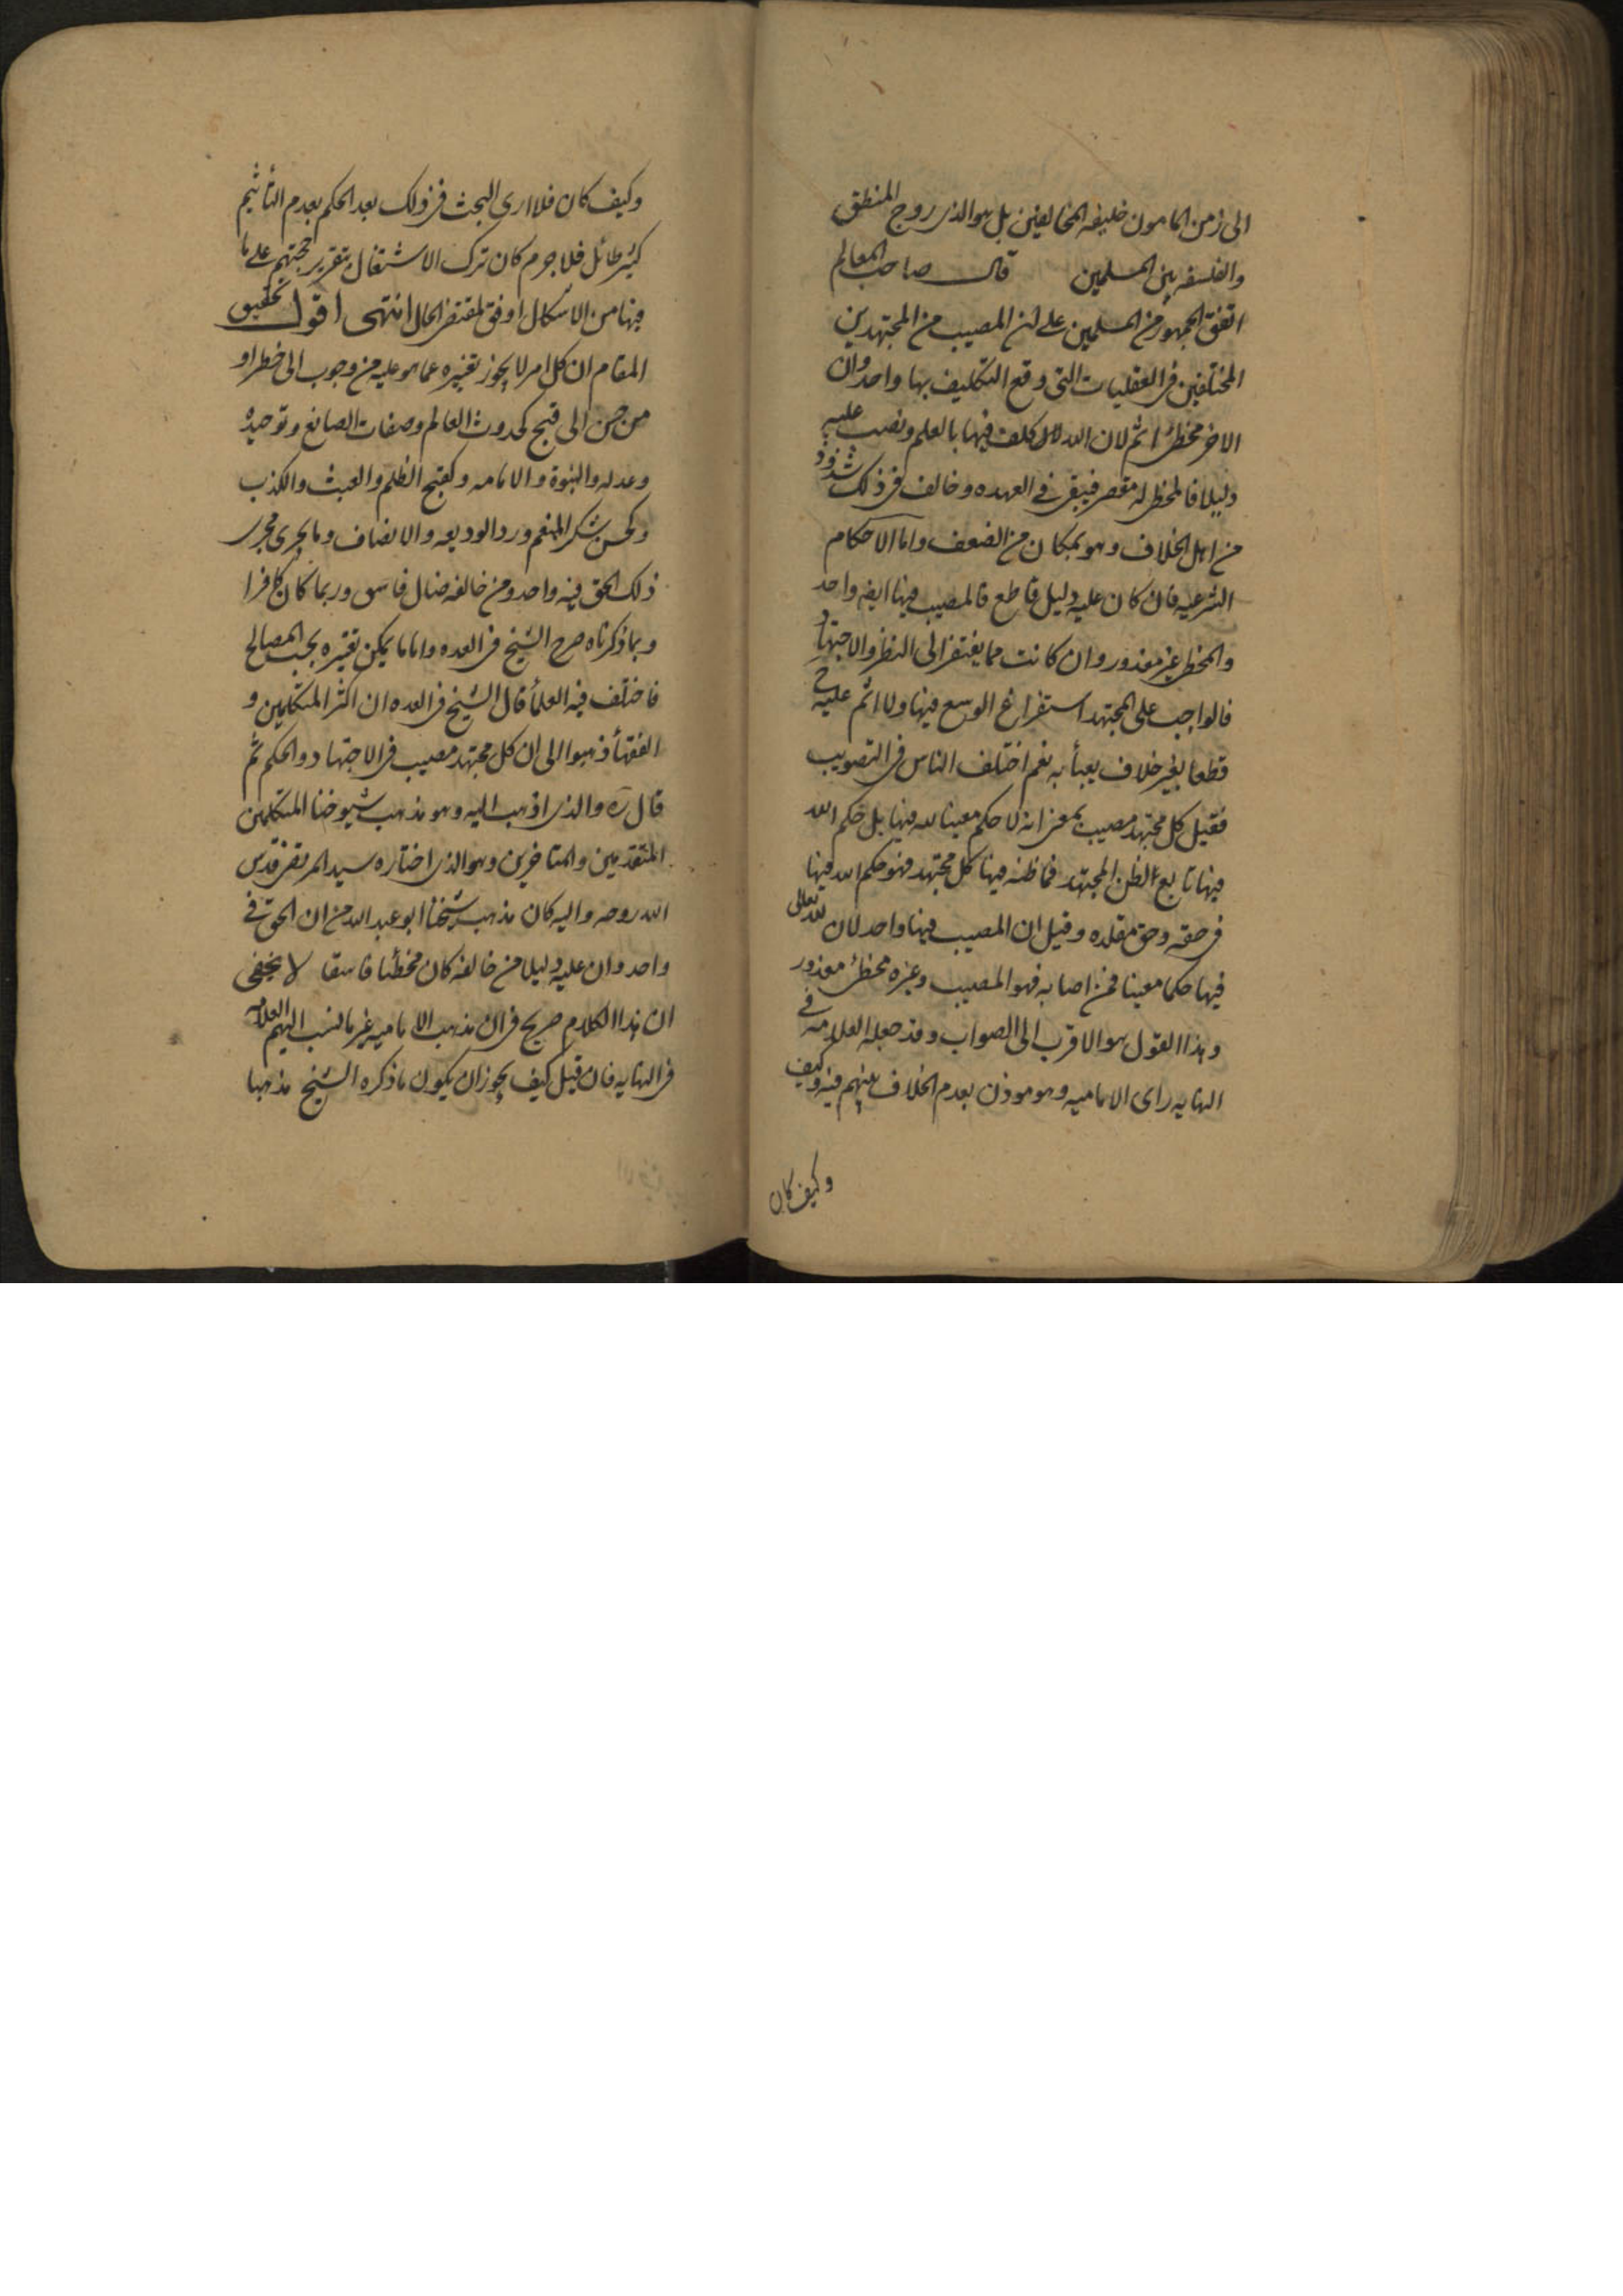 الى زمن المامون خليفه المخالفين بل هو الذى روج المنطق
والفلسفه بين المسلمين قال صاحب المعالم
اتفق الجمهور من المسلمين على ان المصيب من المجتهدين
المختلفين فى العقليات التى وقع التكليف بها واحد وان
الاخر مخطئ اثم لان الله كلف فيها بالعلم ونصب عليه
دليلا فالمخطى له مقصر فيبقى فى العهده وخالف فى ذلك شذوذ
من اهل الخلاف وهو بمكان من الضعف واما الاحكام
الشرعيه فان كان عليه دليل قاطع فالمصيب فيها ايضا واحد
والمخطى غير معذور وان كانت مما يفتقر الى النظر والاجتهاد
فالواجب على المجتهد استفراغ الوسع فيها ولا اثم عليه ح
قطعا بغير خلاف يعبأ به نعم اختلف الناس فى التصويب
فقيل كل مجتهد مصيب بمعنى انه لا حكم معينا لله فيها بل حكم الله
فيها تابع لظن المجتهد فما ظنه فيها كل مجتهد فهو حكم الله فيها
فى حقه وحق مقلده وقيل ان المصيب فيها واحد لان لله تعالى
فيها حكما معينا فمن اصابه فهو المصيب وغيره مخطئ معذور
وهذا القول هو الاقرب الى الصواب وقد جعله العلامه فى
النهايه راى الاماميه وهو موذن بعدم الخلاف بينهم فيه وكيف
وكيف كان
وكيف كان فلا ارى البحث فى ذلك بعد الحكم بعدم التأثيم
كثير طائل فلا جرم كان ترك الاشتغال بتقرير حججهم على ما
فيها من الاشكال اوفق لمقتضى الحال انتهى اقول تحقيق
المقام ان كل امر لا يجوز تغيره عما هو عليه من وجوب الى خطر او
من حسن الى قبح كحدوث العالم وصفات الصانع وتوحيده
وعدله والنبوة والامامه وكقبح الظلم والعبث والكذب
وكحسن شكر المنعم ورد الوديعه والانصاف وما يجرى مجرى
ذلك الحق فيه واحد ومن خالفه ضال فاسق وربما كان كافرا
وبما ذكرناه صرح الشيخ فى العده واما ما يمكن تغيره بحسب المصالح
فاختلف فيه العلمأ قال الشيخ فى العده ان اكثر المتكلمين و
الفقهأ ذهبوا الى ان كل مجتهد مصيب فى الاجتهاد والحكم ثم
قال ره والذى اذهب اليه وهو مذهب شيوخنا المتكلمين
المتقدمين والمتاخرين وهو الذى اختاره سيد المرتضى قدس
الله روحه واليه كان مذهب شيخنا ابو عبد الله من ان الحق فى
واحد وان عليه دليلا من خالفه كان مخطئا فاسقا لا يخفى
ان هذا الكلام صريح فى ان مذهب الاماميه غير ما نسب اليهم العلامه
فى النهايه فان قيل كيف يجوز ان يكون ما ذكره الشيخ مذهبا